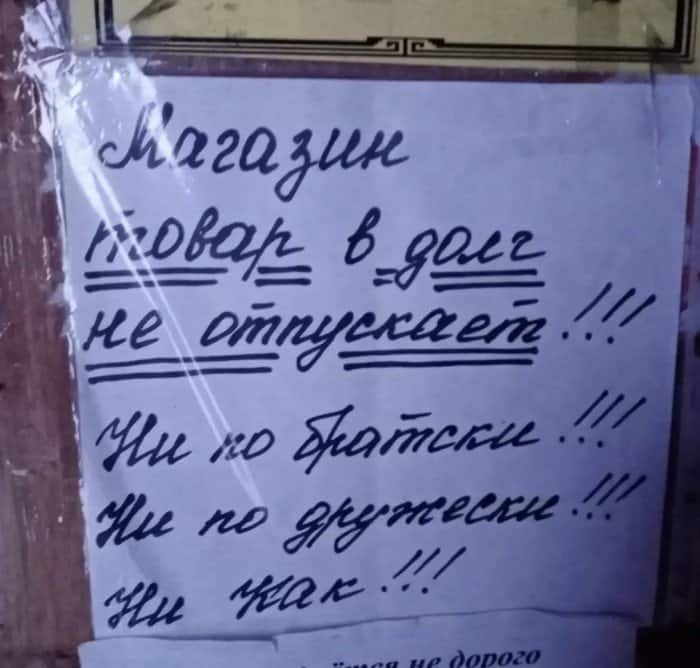 Магазин
товар в долг
не отпускает!!!
Ни по братски!!!
Ни по дружески!!!
Ни как!!!
не дорого